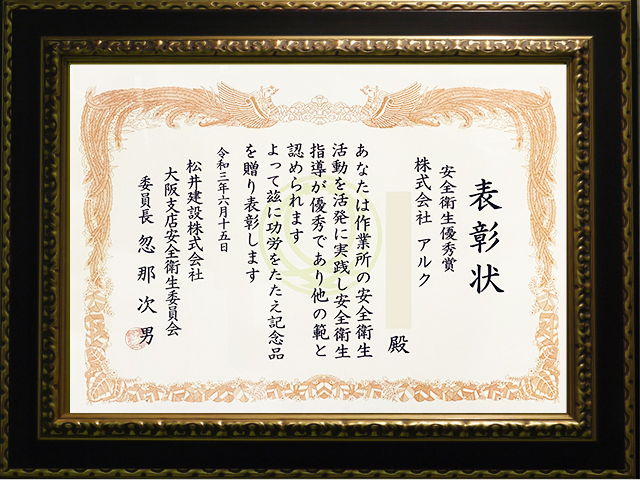 表彰状
安全衛生優秀賞
株式会社 アルク
殿
あなたは作業所の安全衛生
活動を活発に実践し安全衛生
指導が優秀であり他の範と
認められます
よって茲に功労をたたえ記念品
を贈り表彰します
令和三年六月十五日
松井建設株式会社
大阪支店安全衛生委員会
委員長 忽那次男